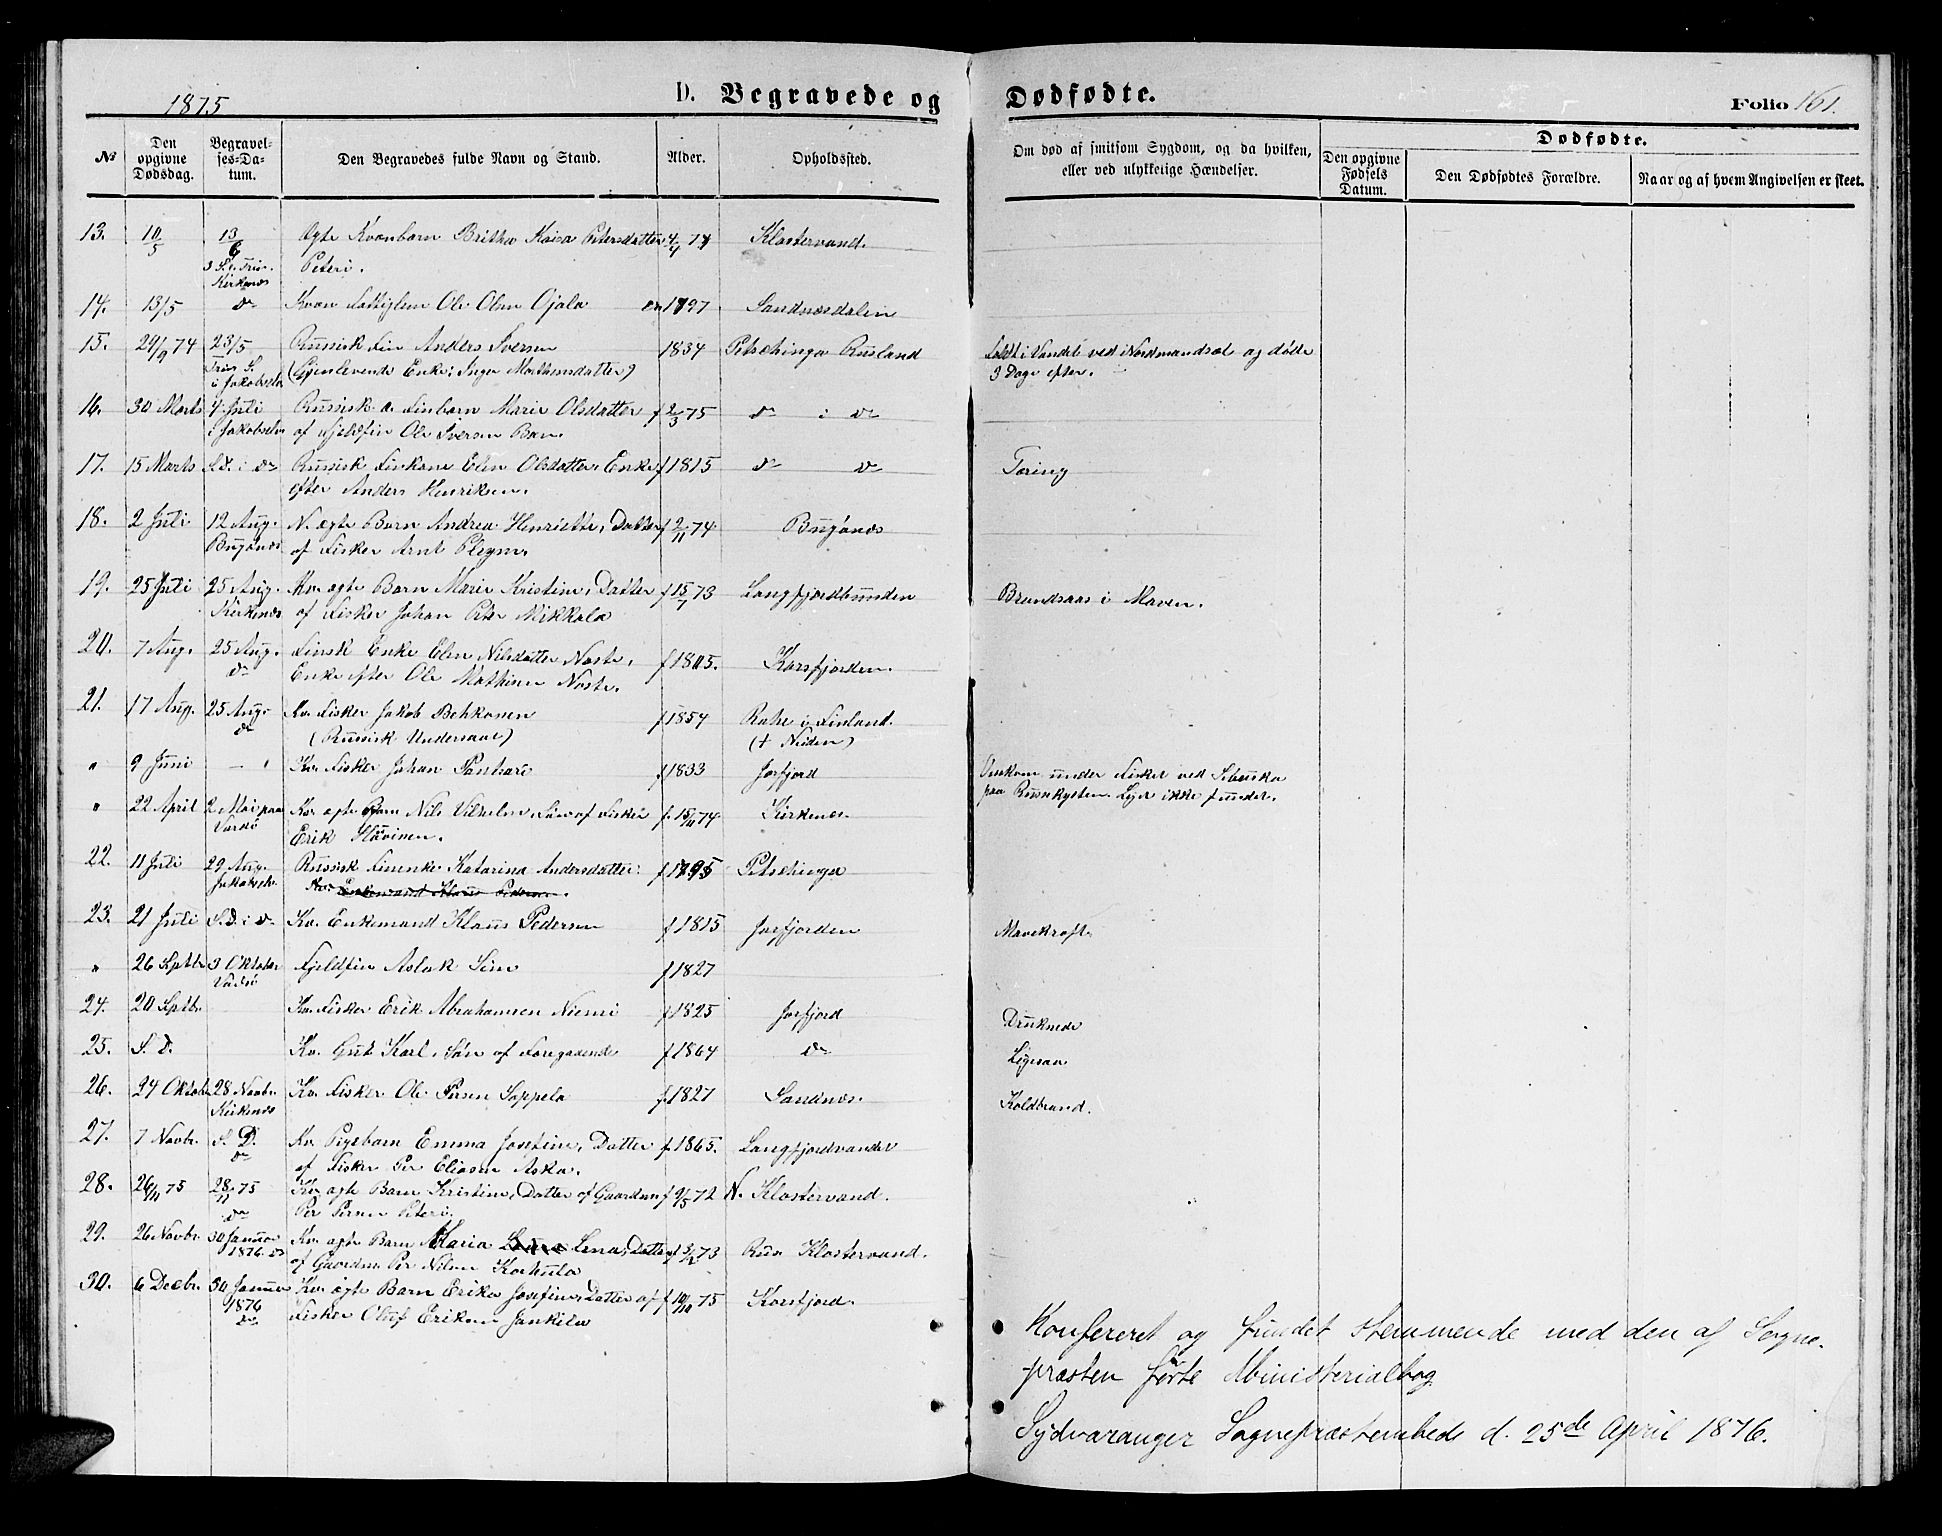 1875
D. Begravede og Dødfødte.
Folio 161.
№
Den opgivne Dødsdag.
Begravelses-Datum.
Den Begravedes fulde Navn og Stand.
Alder.
Opholdssted.
Om død af smitsom Sygdom, og da hvilken, eller ved ulykkelige Hændelser.
Dødfødte.
Den opgivne Fødsels Datum.
Den Dødfødtes Forældre.
Naar og af hvem Angivelsen er skeet.
13. 10/5 13/6 Ægte Kvænbarn Britha Kaisa Petersdatter 4/4 74 Klostervand.
3 S. e. Trin. Kirkenæs Peteri.
14. 13/5 do Kvæn Ole Olsen Ojala 1797 Sandnæsdalen
15. 29/9 74 23/5 Russisk Fin Anders Iversen 1834 Petschinga Rusland Faldt i Vandet ved Nordmandsæt og døde
Trin S. i Jakobselv (Gjenlevende Enke: Inger Mathisdatter) 3 Dage efter.
16. 30 Marts 4 Juli Russisk æ. Finbarn Marie Olsdatter f 2/3 75 do i do
i Jakobselv af Fjeldfin Ole Iversen
17. 15 Marts S.D. i do Russisk Finkone Elen Olsdatter, Enke f 1815 do do Tæring
efter Anders Henriksen.
18. 2 Juli 12 Aug. N. ægte Barn Andrea Henriette, Datter f 2/11 74 Bugønæs
Bugønæs af Fisker Arnt
19. 25 Juli 25 Aug. Kv. ægte Barn Marie Kristine, Datter f 15/7 73 Langfjordbunden Brandsaar i Maven.
Kirkenæs af Fisker Johan Peter Mikkala
20. 7 Aug. 25 Aug. Finsk Enke Elen Nilsdatter Noste, f 1805. Korsfjorden.
do Enke efter Ole Mathisen Noste.
21. 17 Aug. 25 Aug. Kv. Fisker Jakob Behkonen f 1854 Rahe i Finland.
do (Russisk Undersaat) (+ Neiden)
" 9 Juni - " Kv. Fisker Johan Panhari f 1833 Jarfjord Omkom under Fisket ved
paa Russekysten. Lig ikke fundet.
" 22 April 2 Mai paa Kv. ægte Barn Nils Vilhelm, Søn af Fisker f. 15/11 74. Kirkenæs.
Vardø Erik
22. 11 Juli 29 Aug. Russisk Finenke Katarina Andersdatter. f 1795 Petschinga
Jakobselv. Kv. Enkemand Klaus Pedersen.
23. 21 Juli S.D. i do Kv. Enkemand Klaus Pedersen f 1815 Jarfjorden Mavekræft.
" 26 Septbr 3 Oktober Fjeldfin Aslak f 1827
Vadsø
24. 20 Septbr. Kv. Fisker Erik Abrahamsen Niemi f 1825 Jarfjord Druknede
25. S. D. Kv. Gut Karl, Søn af Foregaaende f 1864 do Ligesaa
26. 24 Oktober 28 Novbr. Kv. Fisker Ole Persen Sappela f. 1827 Sandnæs. Koldbrand.
Kirkenæs
27. 7 Novbr. S. D. Kv. Pigebarn Emma Josefine, Datter f. 1865. Langfjordvandet
do af Fisker Per Eliasen Aska.
28. 26/11 75 28/11 75 Kv. ægte Barn Kristine, Datter af Gaardm. f 9/5 72 N. Klostervand.
do Per Persen Peteri.
29. 26 Novbr. 30 Januar Kv. ægte Barn Maria Lena, Datter f 73 Russ Klostervand.
1876 do af Gaardm. Per Nilsen Korhula
30. 6 Decbr. 30 Januar Kv. ægte Barn Erika Josefine, Datter af f 10/10 75 Korsfjord.
1876 do Fisker Oluf Eriksen Jankila
Konfereret og fundet stemmende med den af Sogne-
præsten førte Ministerialbog
Sydvaranger Sognepræstembede d. 25de April 1876.